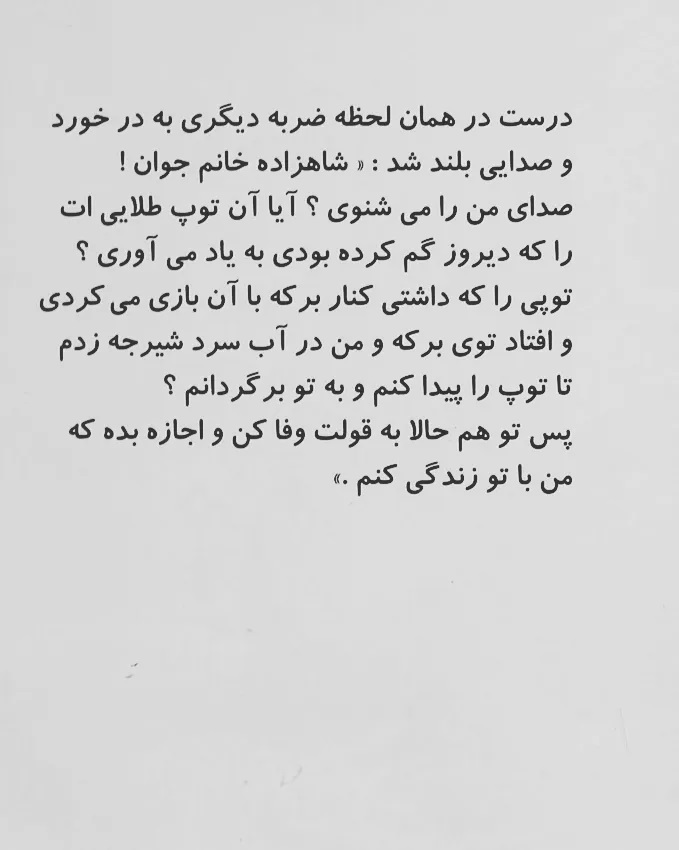 درست در همان لحظه ضربه دیگری به در خورد
و صدایی بلند شد : « شاهزاده خانم جوان !
صدای من را می شنوی ؟ آیا آن توپ طلایی ات
را که دیروز گم کرده بودی به یاد می آوری ؟
توپی را که داشتی کنار برکه با آن بازی می کردی
و افتاد توی برکه و من در آب سرد شیرجه زدم
تا توپ را پیدا کنم و به تو برگردانم ؟
پس تو هم حالا به قولت وفا کن و اجازه بده که
من با تو زندگی کنم .»